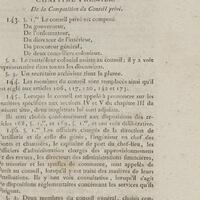 De la Composition du Conseil privé.
143. §. 1.er Le conseil privé est composé
Du gouverneur,
De l'ordonnateur,
Du directeur de l'intérieur,
Du procureur général,
De deux conseillers coloniaux.
§. 2. Le contrôleur colonial assiste au conseil; il y a voix
représentative dans toutes les discussions.
§. 3. Un secrétaire archiviste tient la plume.
144. Les membres du conseil sont remplacés ainsi qu'il
est réglé aux articles 106, 117, 120, 142 et 173.
145. Lorsque le conseil est appelé à prononcer sur les
matières spécifiées aux sections IV et V du chapitre III du
titre, deux magistrats lui sont adjoints.
Ils sont choisis conformément aux dispositions des
articles 168, §. 1.er, et 169, §. 1.er, et ont voix délibérative.
146. §. 1.er Les officiers chargés de la direction
d'artillerie et de celle du génie, l'ingénieur en chef des
ponts et chaussées, le capitaine de port du chef-lieu, les
officiers d'administration chargés des approvisionnements
et des revues, les directeurs des administrations financières,
le trésorier et les greffes de commune, sont appelés de
droit au conseil, lorsqu'il y est traité des matières de leurs
attributions. Ils y ont voix consultative, lorsqu'il s'agit
de dispositions réglementaires concernant les services qu'ils
dirigent.
§. 2. Deux membres du conseil général, choisis